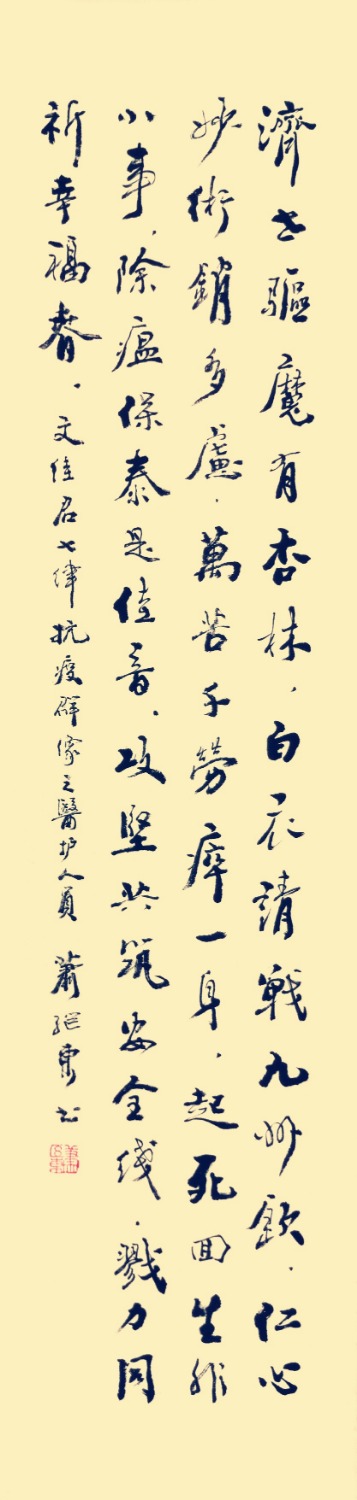 濟世驅魔有杏林，白衣請戰九州欽。仁心
妙術銷多慮，萬苦千勞瘁一身。起死回生非
小事，除瘟保泰是佳音。攻堅共筑安全线，戮力同
祈幸福春。
文佳君七律抗疫群像之醫护人員 蕭继東书